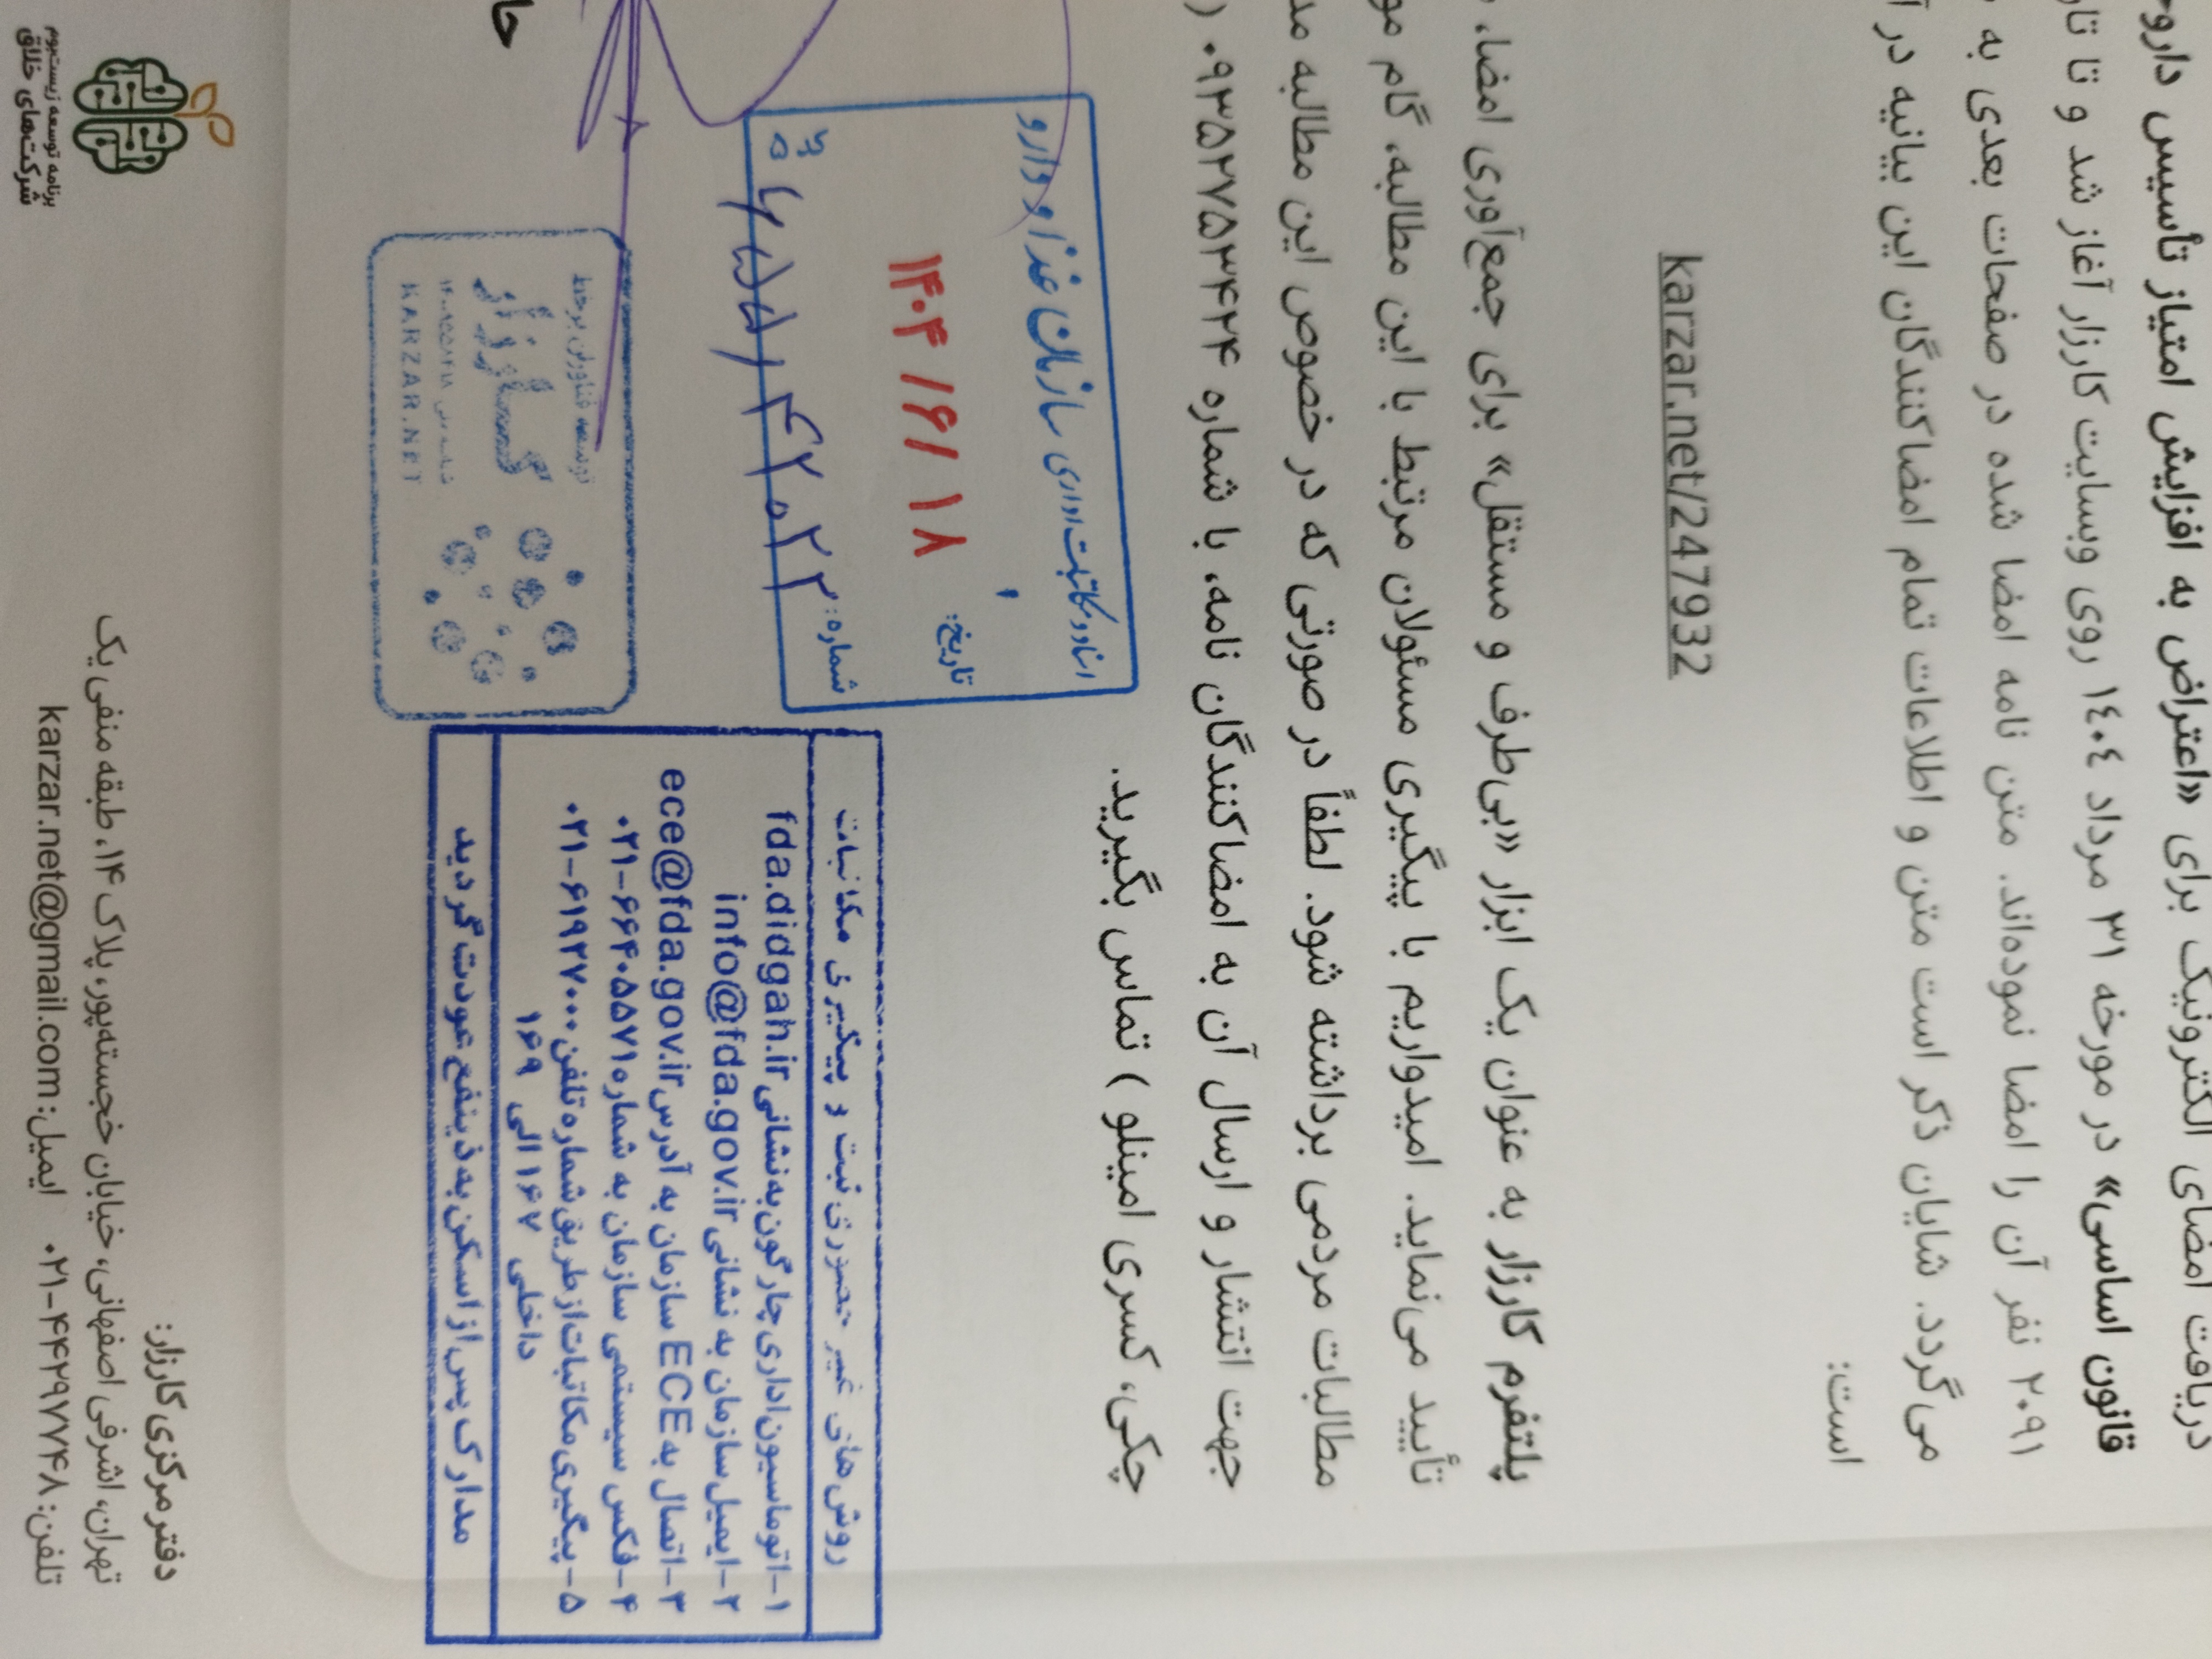 دریافت امضای الکترونیک برای «اعتراض به افزایش امتیاز تأسیس
قانون اساسی» در مورخه ۳۱ مرداد ۱٤۰٤ روی وبسایت کارزار آغاز شد و تا
۲۰۹۱ نفر آن را امضا نموده‌اند. متن نامه امضا شده در صفحات بعدی به
می‌گردد. شایان ذکر است متن و اطلاعات تمام امضاکنندگان این بیانیه در
است:
karzar.net/247932
پلتفرم کارزار به عنوان یک ابزار «بی‌طرف و مستقل» برای جمع‌آوری امضا،
تأیید می‌نماید. امیدواریم با پیگیری مسئولان مرتبط با این مطالبه، گام
مطالبات مردمی برداشته شود. لطفاً در صورتی که در خصوص این مطالبه
جهت انتشار و ارسال آن به امضاکنندگان نامه، با شماره ۰۹۳۵۲۷۵۳۴۲۴ (
چکی، کسری امینلو ) تماس بگیرید.
سازمان غذا و دارو
اسناد و مکاتبات اداری
تاریخ: ۱۴۰۴/۶/۱۸
شماره:
روش‌های غیر حضوری ثبت و پیگیری مکاتبات
۱-اتوماسیون اداری چارگون به نشانی fda.didgah.ir
۲-ایمیل سازمان به نشانی info@fda.gov.ir
۳-اتصال به ECE سازمان به آدرس ece@fda.gov.ir
۴-فکس سیستمی سازمان به شماره ۰۲۱-۶۶۴۰۵۵۷۱
۵-پیگیری مکاتبات از طریق شماره تلفن ۰۲۱-۶۱۹۲۷۰۰۰
داخلی ۱۶۷ الی ۱۶۹
مدارک پس از اسکن به ذینفع عودت گردید
توسعه فناوران برخط
کارزار
KARZAR.NET
دفتر مرکزی کارزار:
تهران، اشرفی اصفهانی، خیابان خجسته‌پور، پلاک ۱۴، طبقه منفی یک
تلفن: ۰۲۱-۴۴۲۹۷۷۴۸ ایمیل: karzar.net@gmail.com
برنامه توسعه زیست‌بوم
شرکت‌های خلاق